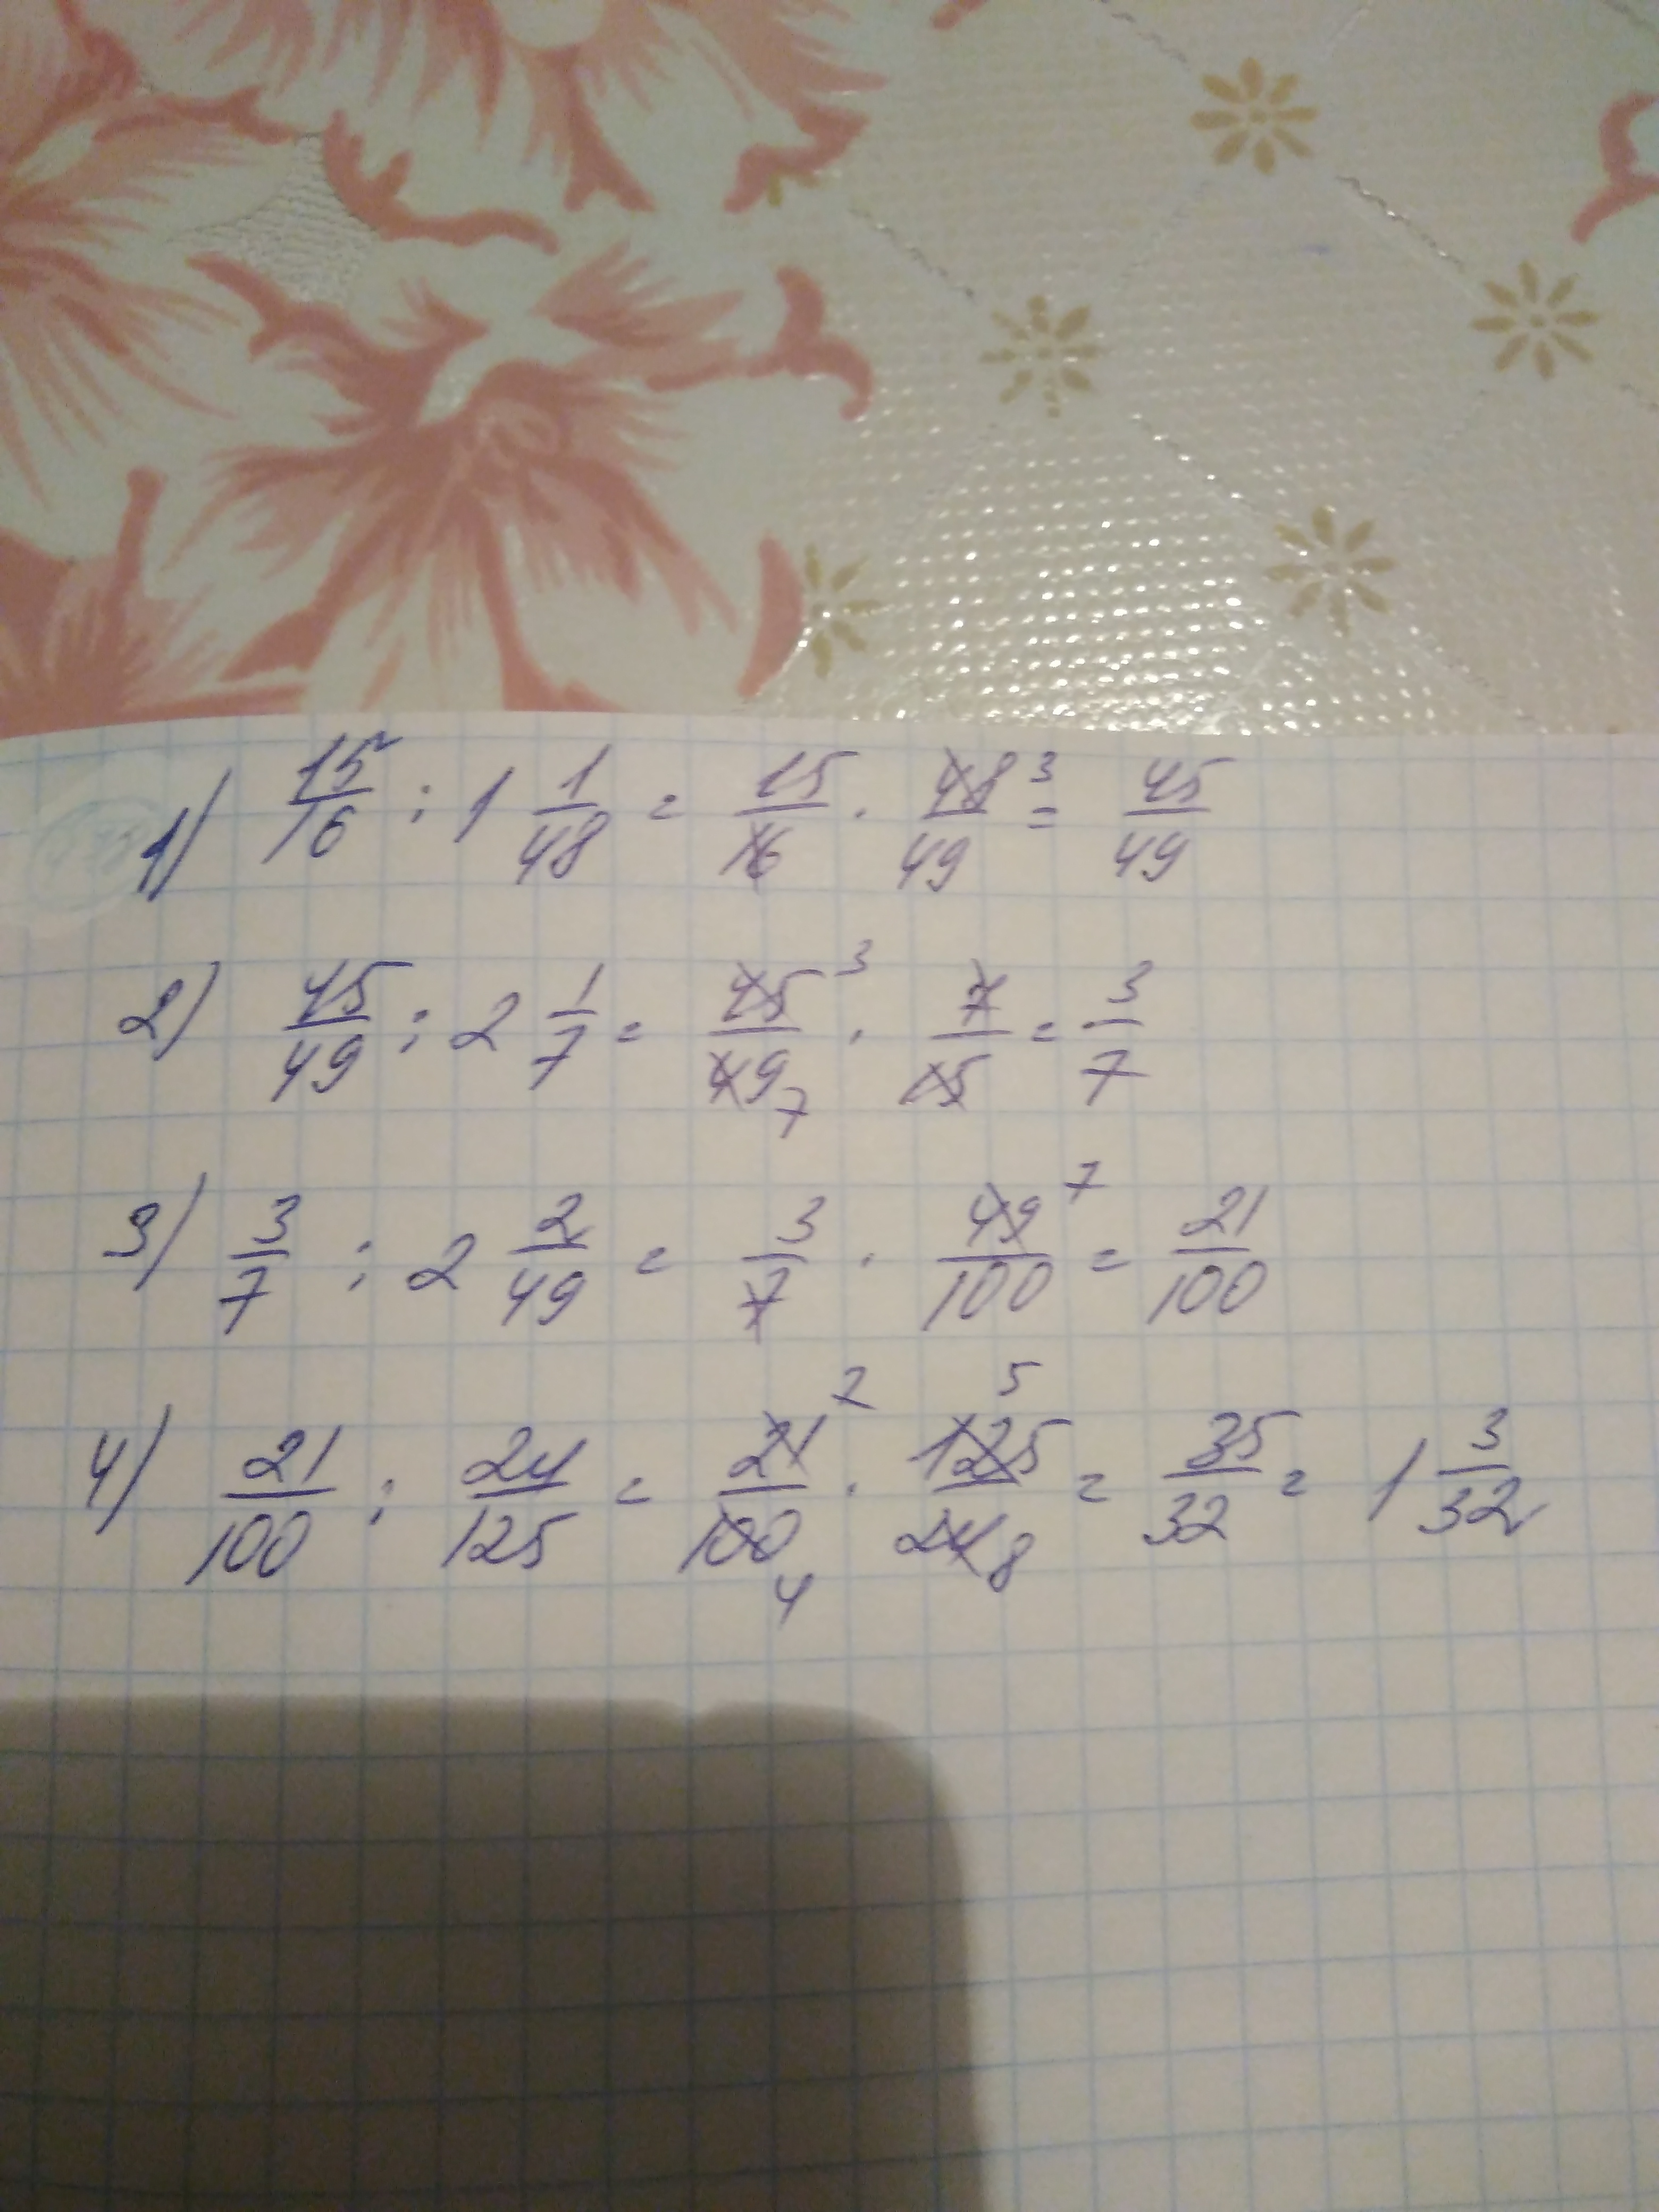 1) 15/16 : 1 1/48 = 15/16 · 48 3/49 = 45/49
2) 45/49 : 2 1/7 = 45 3/49 7 · 7/15 = 3/7
3) 3/7 : 2 2/49 = 3/7 · 49 7/100 = 21/100
4) 21/100 : 24/125 = 21 7/100 4 · 125 5/24 8 = 35/32 = 1 3/32